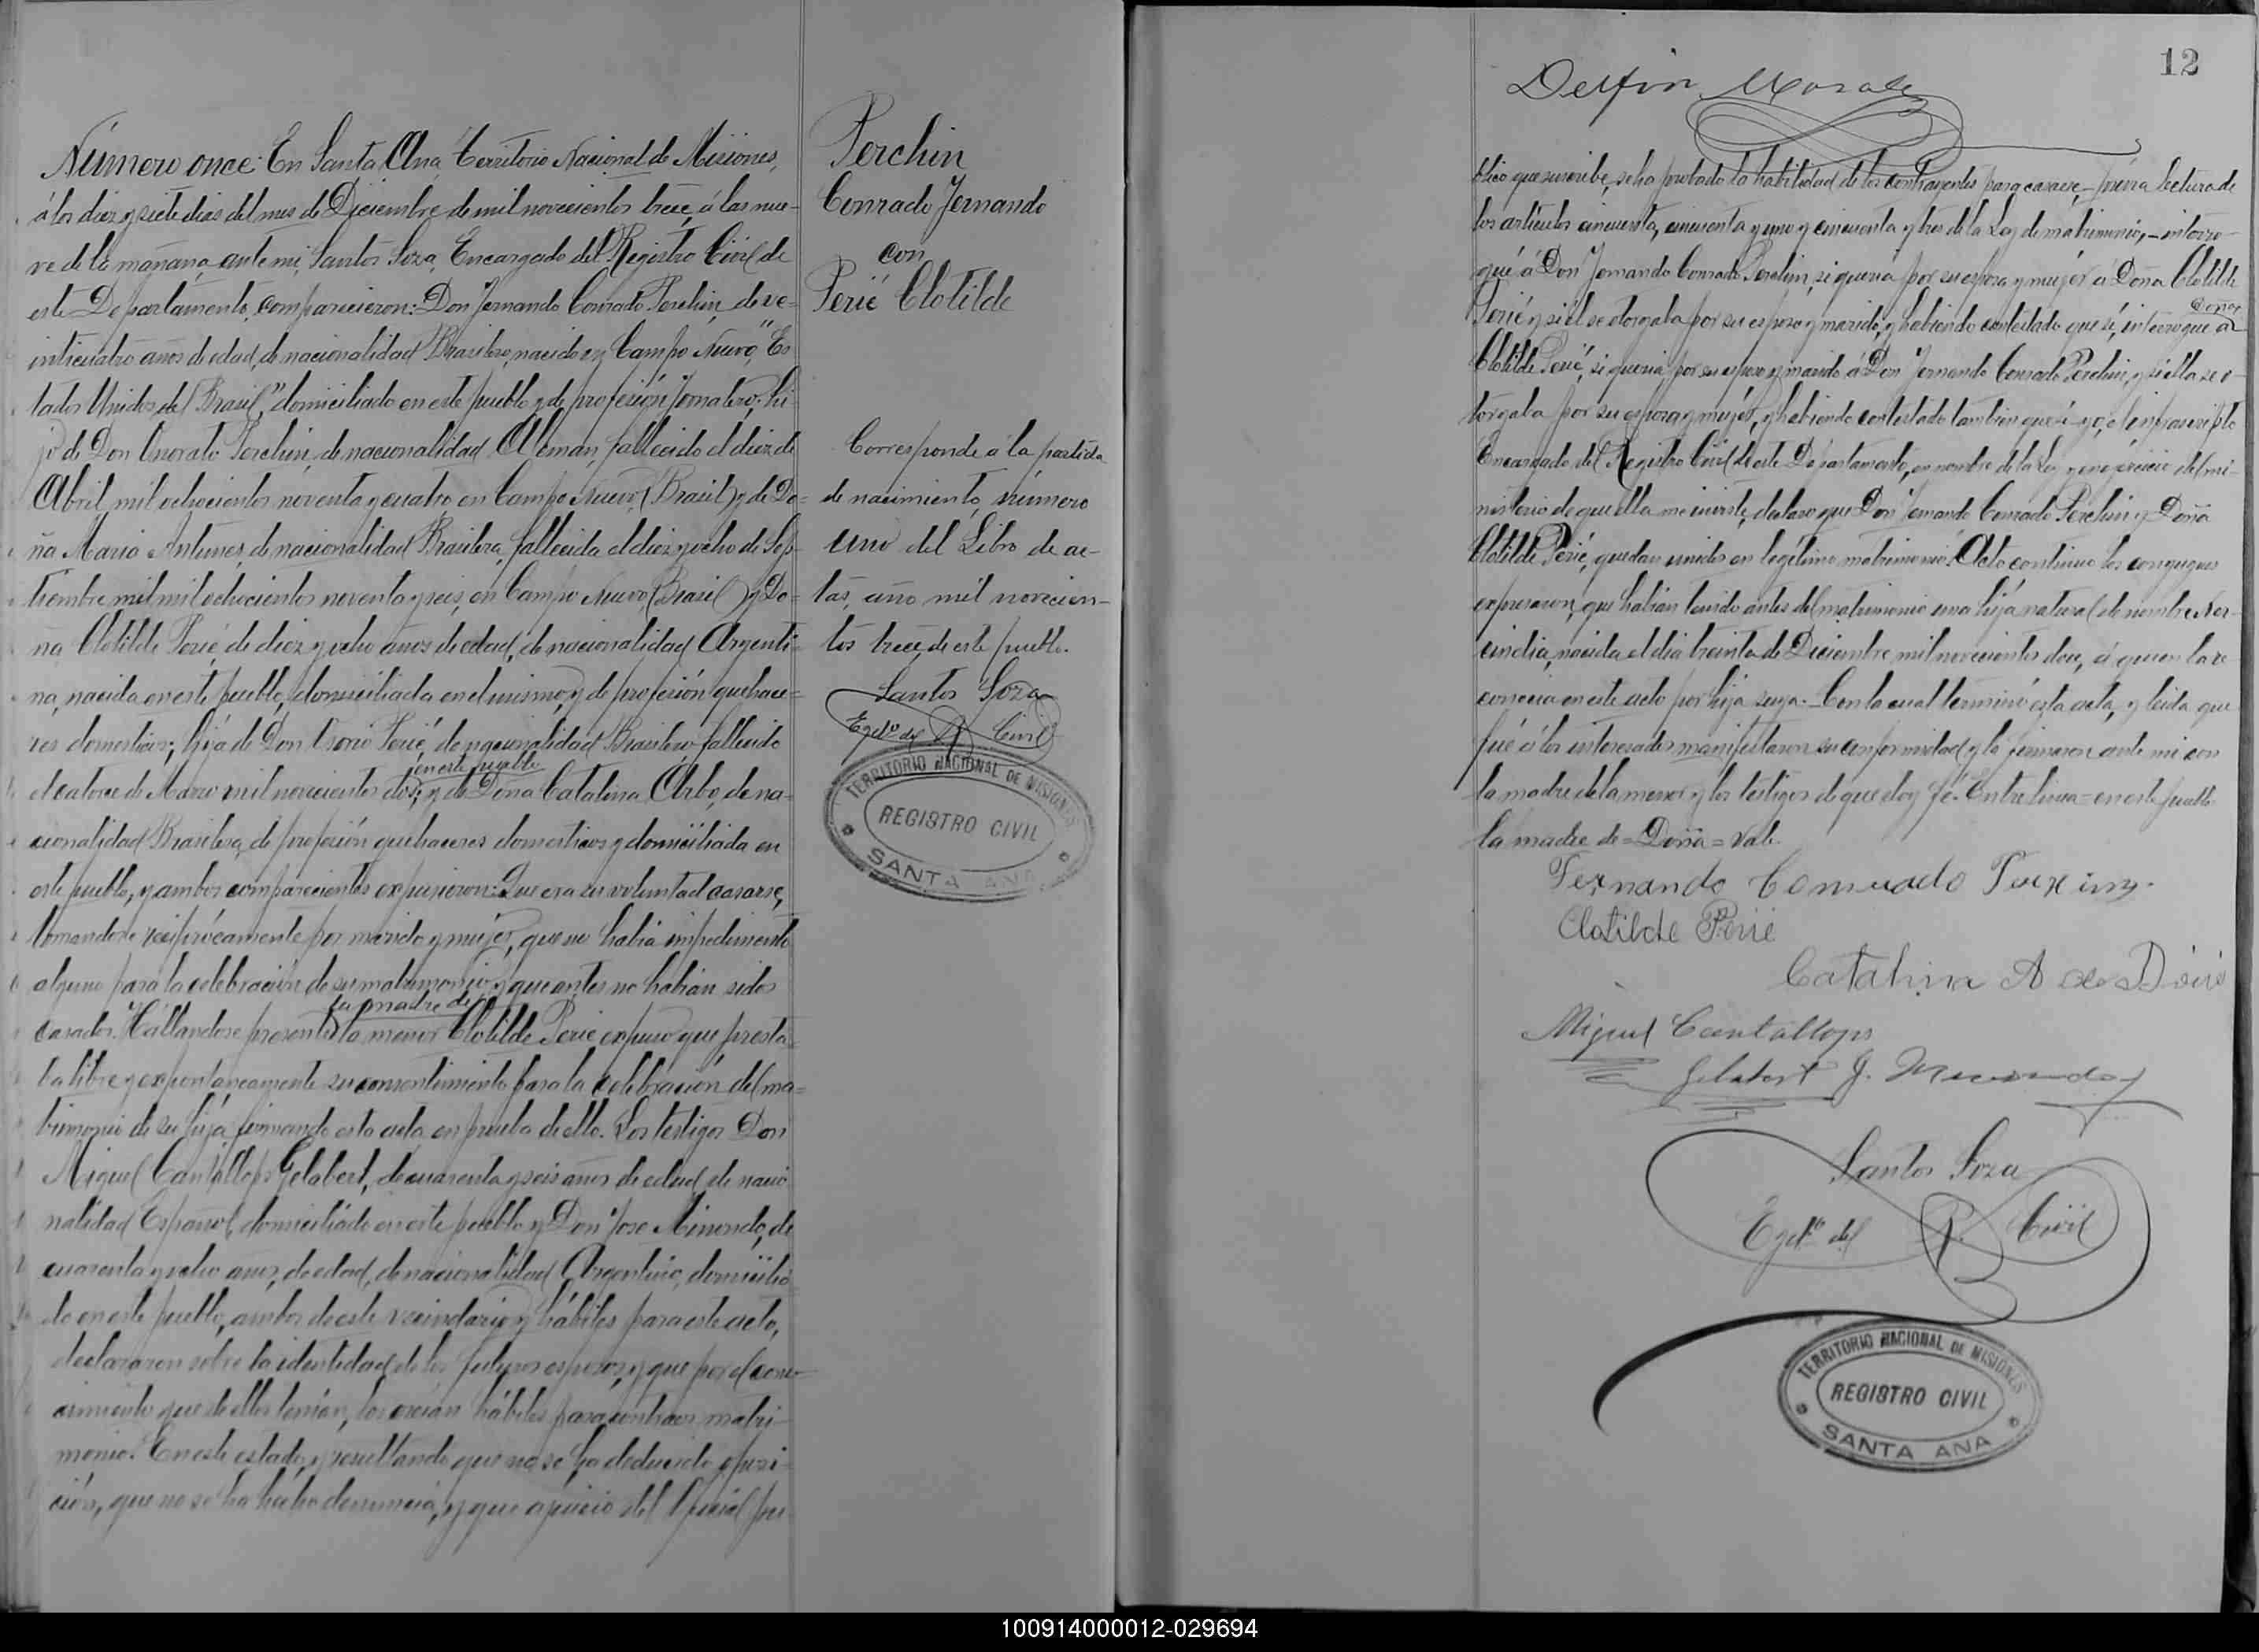 Número once: En Santa Ana, Territorio Nacional de Misiones,
á los diez y siete dias del mes de Diciembre de mil novecientos trece, á las nue-
ve de la mañana, ante mi, Santos Soza, Encargado del Registro Civil de
este Departamento, comparecieron: Don Fernando Conrado Perchin, de ve-
inticuatro años de edad, de nacionalidad Brasilero, nacido en Campo Nuevo, "Es
tados Unidos del Brasil," domiciliado en este pueblo y de profesión Jornalero; hi-
jo de Don Perchin, de nacionalidad Aleman, fallecido el diez de
Abril mil ochocientos noventa y cuatro, en Campo Nuevo, (Brasil) y de Do=
ña Maria Antunes, de nacionalidad Brasilera, fallecida el diez y ocho de Sep-
tiembre mil mil ochocientos noventa y seis, en Campo Nuevo, (Brasil) y Do=
ña Clotilde Perié, de diez y ocho años de edad, de nacionalidad Argenti=
na, nacida en este pueblo, domiciliada en el mismo, y de profesión quehace=
res domesticos; hija de Don Perié, de nacionalidad Brasilero fallecido
en este pueblo
el catorce de Marzo mil novecientos dos; y de Doña Catalina Arbo, de na=
cionalidad Brasilera, de profesión quehaceres domesticos y domiciliada en
este pueblo, y ambos comparecientes expusieron: Que era su voluntad casarse,
tomandose recíprocamente por marido y mujer, que no habia impedimento
alguno para la celebración de su matrimonio y que antes no habian sido
la madre de
casados. Hállandose presente la menor Clotilde Perié expuso que presta-
ba libre y expontaneamente su consentimiento para la celebración del ma=
trimonio de su hija, firmando esta acta en prueba de ello. Los testigos Don
Miguel Cantallops Gelabert, de cuarenta y seis años de edad, de nacio
nalidad Español, domiciliado en este pueblo y Don José Minondo, de
cuarenta y ocho años, de edad, de nacionalidad Argentino, domicilia
do en este pueblo, ambos de este vecindario y hábiles para este acto,
declararon sobre la identidad de los futuros esposos, y que por el cono-
cimiento que de ellos tenian, los creian hábiles para contraer matri-
monio. En este estado, y resultando que no se ha deducido oposi-
ción, que no se ha hecho denuncia, y que a juicio del Oficial pu-
Perchin
Conrado Fernando
con
Perié Clotilde
Corresponde á la partida
de nacimiento, número
uno del Libro de ac-
tas, año mil novecien-
tos trece de este pueblo.
Santos Soza
Egdo del R. Civil
TERRITORIO NACIONAL DE MISIONES
REGISTRO CIVIL
SANTA ANA
12
Delfin Morales
blico que suscribe, se ha probado la habilidad de los contrayentes para casarse, - prévia lectura de
los artículos cincuenta, cincuenta y uno y cincuenta y tres de la Ley de matrimonio, - interro-
gué á Don Fernando Conrado Perchin, si queria por su esposa y mujer á Doña Clotilde
Doña
Perié y si él se otorgaba por su esposo y marido, y habiendo contestado que sí, interrogue á
Clotilde Perié, si queria, por su esposo y marido á Don Fernando Conrado Perchin, y si ella se o-
torgaba por su esposa y mujer, y habiendo contestado tambien que sí - yo, el infrascripto
Encargado del Registro Civil de este Departamento, en nombre de la Ley y en ejercicio del mi-
nisterio de que ella me inviste, declaro que Don Fernando Conrado Perchin y Doña
Clotilde Perié, quedan unidos en legítimo matrimonio. Acto continuo los conyuges
expresaron, que habian tenido antes del matrimonio una hija natural de nombre Ner-
cindia, nacida el dia treinta de Diciembre mil novecientos doce, á quien la re-
conocia en este acto por hija suya. - Con lo cual terminó esta acta, y leida que
fué á los interesados manifestaron su conformidad y la firmaron ante mi con
la madre de la menor y los testigos de que doy fé. Entre linea = en este pueblo
la madre de = Doña = Vale.
Fernando Conrado
Clotilde Perié
Catalina A de
Miguel Cantallops
Gelabert J. Minondo
Santos Soza
Egdo del R. Civil
TERRITORIO NACIONAL DE MISIONES
REGISTRO CIVIL
SANTA ANA
100914000012-029694